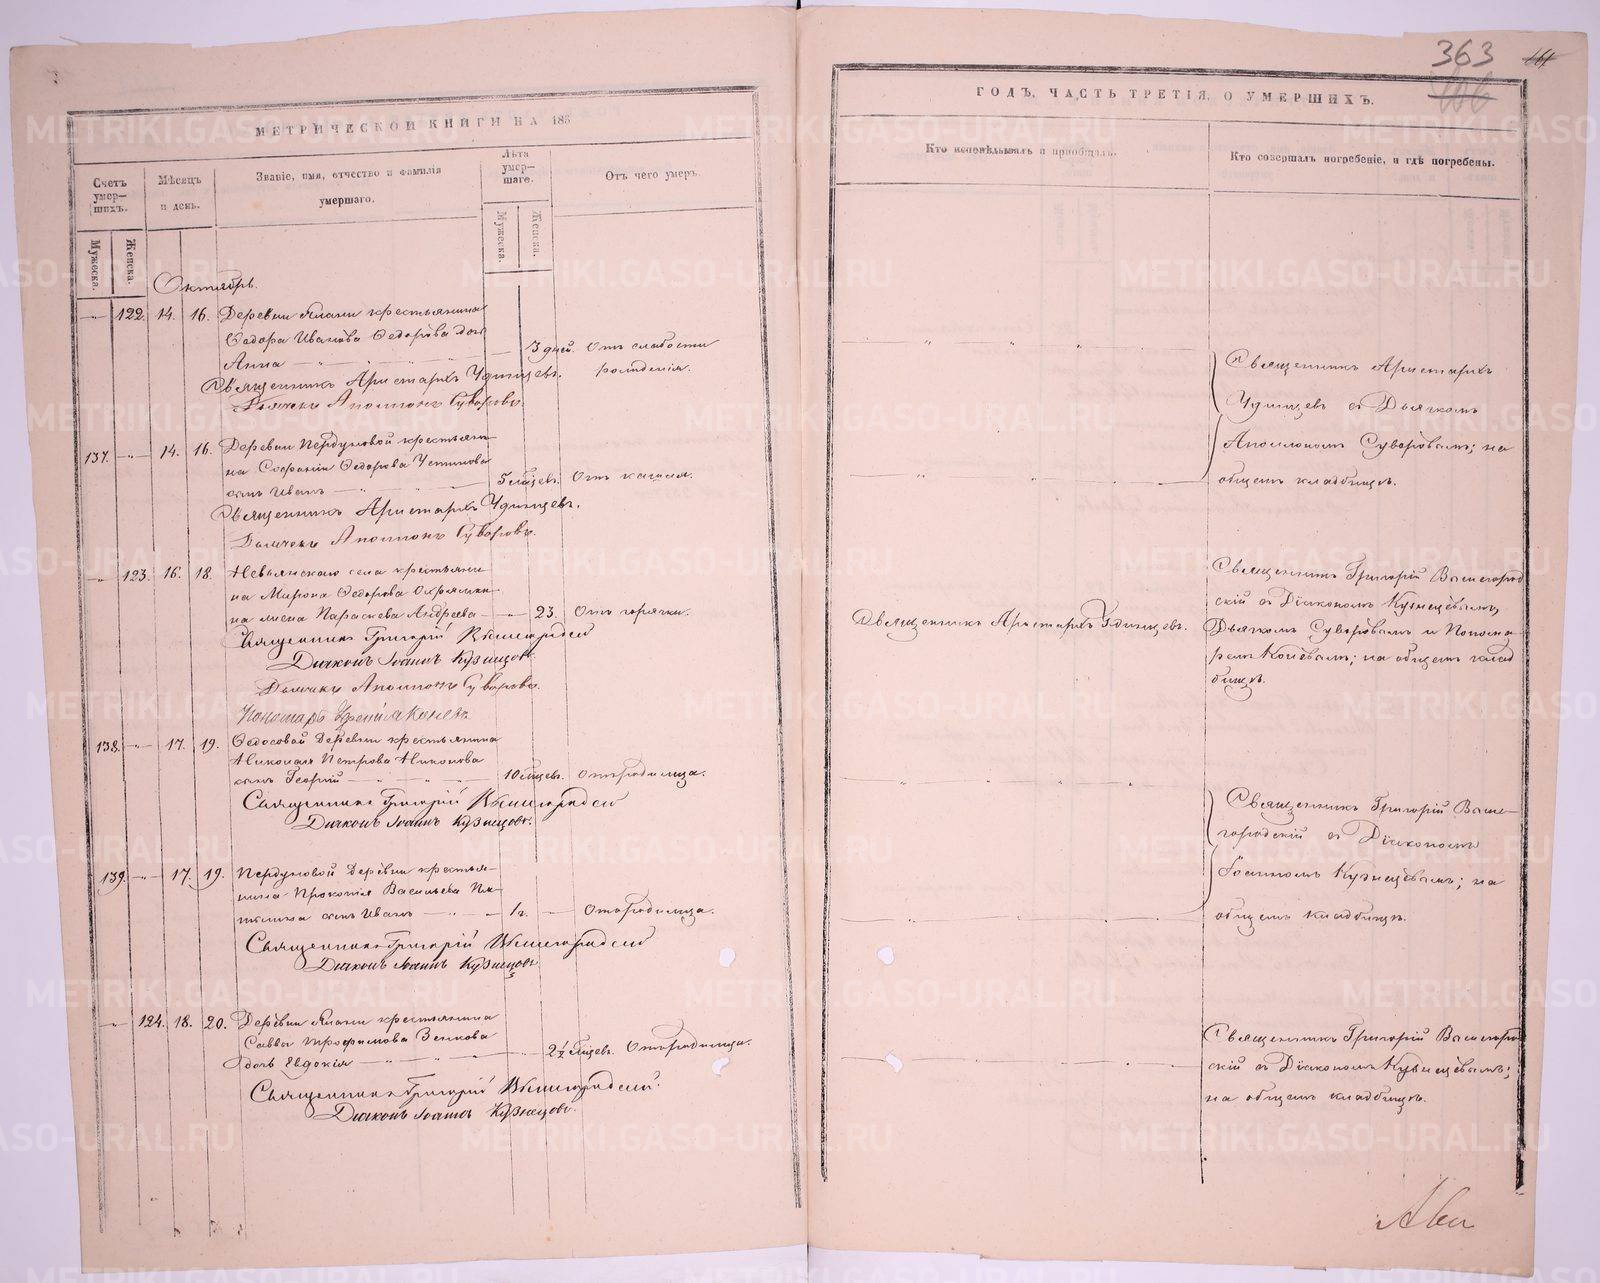 363
МЕТРИЧЕСКОЙ КНИГИ НА 185
ГОДЪ, ЧАСТЬ ТРЕТІЯ, О УМЕРШИХЪ.
Счетъ умер-шихъ.
Мужеска.
Женска.
Мѣсяцъ и день.
Званіе, имя, отчество и фамилія умершаго.
Лѣта умер-шаго.
Мужеска.
Женска.
Отъ чего умеръ.
Кто исповѣдывалъ и пріобщалъ.
Кто совершалъ погребеніе, и гдѣ погребены.
Октябрь.
122. 14. 16. Деревни крестьянина
Ѳедора Иванова Ѳедорова дочь
Анна 3 дней. Отъ слабости
рожденія.
Священникъ Аристархъ Удинцевъ.
Дьячекъ Аполлонъ Суворовъ.
Священникъ Аристархъ
Удинцевъ съ Дьячкомъ
Аполлономъ Суворовымъ; на
общемъ кладбищѣ.
137. 14. 16. Деревни Пердуновой крестьяни-
на Ѳедорова Устинова
сынъ Иванъ 5 мѣсцевъ. Отъ кашля.
Священникъ Аристархъ Удинцевъ.
Дьячекъ Аполлонъ Суворовъ.
123. 16. 18. Невьянскаго села крестьяни-
на Мирона Ѳедорова
жена Параскева Андреева 23. Отъ горячки.
Священникъ Григорій Вышегородскій
Діаконъ Іоаннъ Кузнецовъ
Дьячекъ Аполлонъ Суворовъ.
Пономарь Коневъ
Священникъ Аристархъ Удинцевъ.
Священникъ Григорій Вышегород
скій съ Діакономъ Кузнецовымъ,
Дьячкомъ Суворовымъ и Понома-
ремъ Коневымъ; на общемъ клад
бищѣ.
138. 17. 19. Ѳедосовой Деревни крестьянина
Николая Петрова Никонова
сынъ Георгій 10 мѣсцевъ. Отъ родимца.
Священникъ Григорій Вышегородскій
Діаконъ Іоаннъ Кузнецовъ.
Священникъ Григорій Выше-
городскій съ Діакономъ
Іоанномъ Кузнецовымъ; на
общемъ кладбищѣ.
139. 17. 19. Пердуновой Деревни крестья-
нина Прокопія Васильева
сынъ Иванъ 1 г. Отъ родимца.
Священникъ Григорій Вышегородскій
Діаконъ Іоаннъ Кузнецовъ
124. 18. 20. Деревни крестьянина
Саввы Трофимова
дочь Евдокія 2½ мѣсцевъ. Отъ родимца.
Священникъ Григорій Вышегородскій.
Діаконъ Іоаннъ Кузнецовъ.
Священникъ Григорій Вышегород
скій съ Діакономъ Кузнецовымъ;
на общемъ кладбищѣ.
METRIKI.GASO-URAL.RU